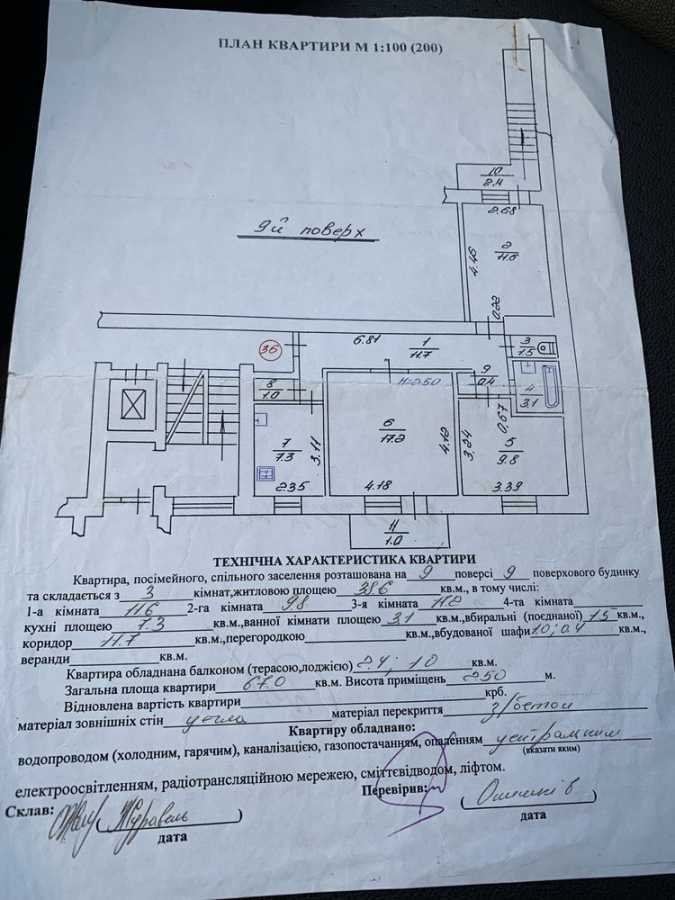 ПЛАН КВАРТИРИ М 1:100 (200)
10
2.4
2.68
9й поверх
4.46
2
11.6
0.22
6.81
1
11.7
3
1.5
36
9
0.4
H=2.50
4
3.1
8
1.0
6
17.2
0.67
7
7.3
3.11
4.12
3.24
5
9.8
2.35
4.18
3.39
11
1.0
ТЕХНІЧНА ХАРАКТЕРИСТИКА КВАРТИРИ
Квартира, посімейного, спільного заселення розташована на 9 поверсі 9 поверхового будинку
та складається з 3 кімнат,житловою площею 38.6 кв.м., в тому числі:
1-а кімната 11.6 2-га кімната 9.8 3-я кімната 17.2 4-та кімната
кухні площею 7.3 кв.м.,ванної кімнати площею 3.1 кв.м.,вбиральні (поєднаної) 1.5 кв.м.,
коридор 11.7 кв.м.,перегородкою кв.м.,вбудованої шафи 1.0; 0.4 кв.м.,
веранди кв.м.
Квартира обладнана балконом (терасою,лоджією) 2.4; 1.0 кв.м.
Загальна площа квартири 67.0 кв.м. Висота приміщень 2.50 м.
Відновлена вартість квартири крб.
матеріал зовнішніх стін цегла матеріал перекриття з/бетон
Квартиру обладнано:
водопроводом (холодним, гарячим), каналізацією, газопостачанням, опаленням центральним
(вказати яким)
електроосвітленням, радіотрансляційною мережею, сміттєвідводом, ліфтом.
Склав: (Журавель)
Перевірив: ( )
дата
дата